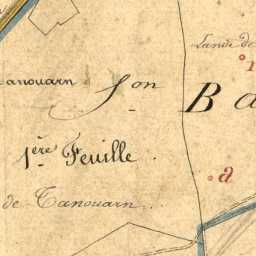 Lande de
anouarn
Son
Ba
1ère Feuille.
a
de Tanouarn